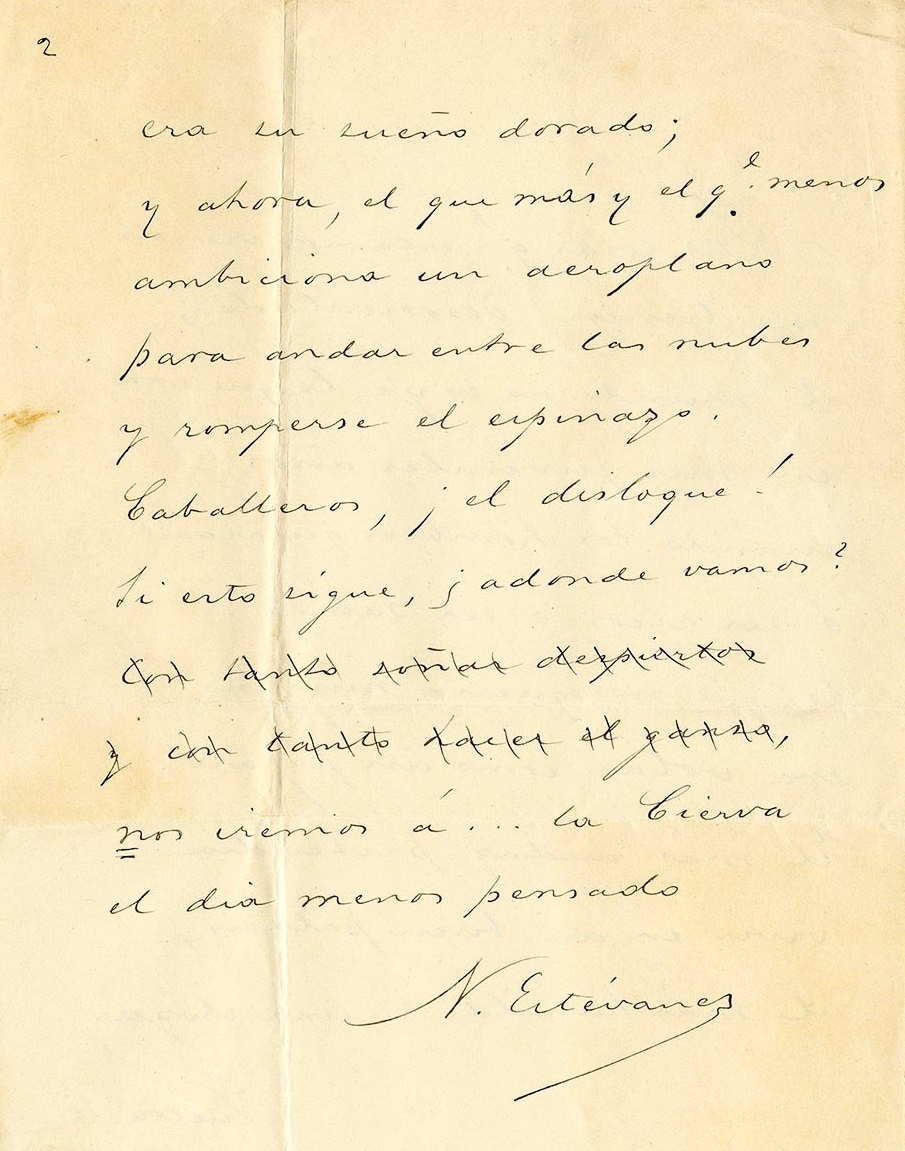 2
era su sueño dorado;
y ahora, el que más y el q.e menos
ambiciona un aeroplano
para andar entre las nubes
y romperse el espinazo.
Caballeros, ¡el disloque!
Si esto sigue, ¿adonde vamos?
Con tanto soñar despiertos
y con tanto hacer el ganso,
nos iremos á... la Cierva
el dia menos pensado
N. Estévanez